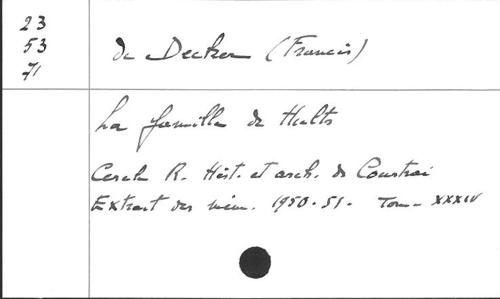 23
53
71
de Decker (Francis)
La famille de Hults
Cercle R. Hist. et arch. de Courtrai
Extrait des mém. 1950-51. Tom. XXXIV